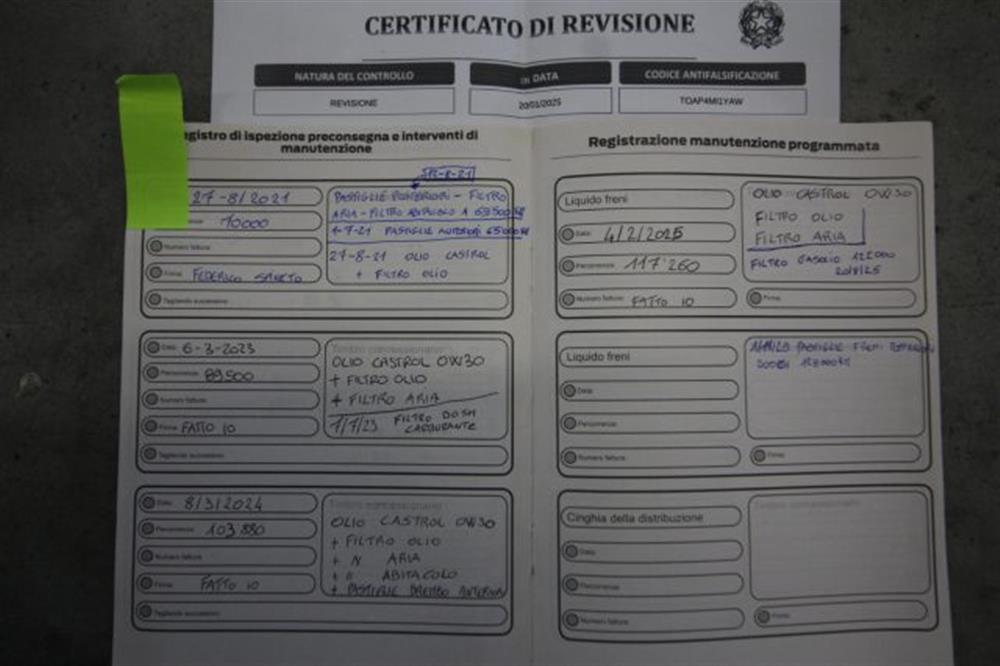 CERTIFICATO DI REVISIONE
NATURA DEL CONTROLLO
IN DATA
CODICE ANTIFALSIFICAZIONE
REVISIONE
20/01/2025
TOAP4MI1YAW
egistro di ispezione preconsegna e interventi di
manutenzione
27-8/2021
70000
Numero fattura
Firma FEDERICO
Tagliando successivo
PASTIGLIE POSTERIORI - FILTRO
ARIA - FILTRO ABITACOLO A 69500
PASTIGLIE ANTERIORI 65000
27-8-21 OLIO CASTROL
+ FILTRO OLIO
Data 6-3-2023
Percorrenza 89500
Numero fattura
Firma FATTO IO
Tagliando successivo
Timbro concessionario
OLIO CASTROL 0W30
+ FILTRO OLIO
+ FILTRO ARIA
1/7/23 FILTRO
CARBURANTE
Data 8/3/2024
Percorrenza 103880
Numero fattura
Firma FATTO IO
Tagliando successivo
Timbro concessionario
OLIO CASTROL 0W30
+ FILTRO OLIO
+ " ARIA
+ " ABITACOLO
+ PASTIGLIE BREMBO
Registrazione manutenzione programmata
Liquido freni
Data 4/2/2025
Percorrenza 117'260
Numero fattura FATTO IO
OLIO CASTROL 0W30
FILTRO OLIO
FILTRO ARIA
FILTRO GASOLIO
Firma
Liquido freni
Data
Percorrenza
Numero fattura
PASTIGLIE FRENI
Firma
Cinghia della distribuzione
Data
Percorrenza
Numero fattura
Timbro concessionario
Firma